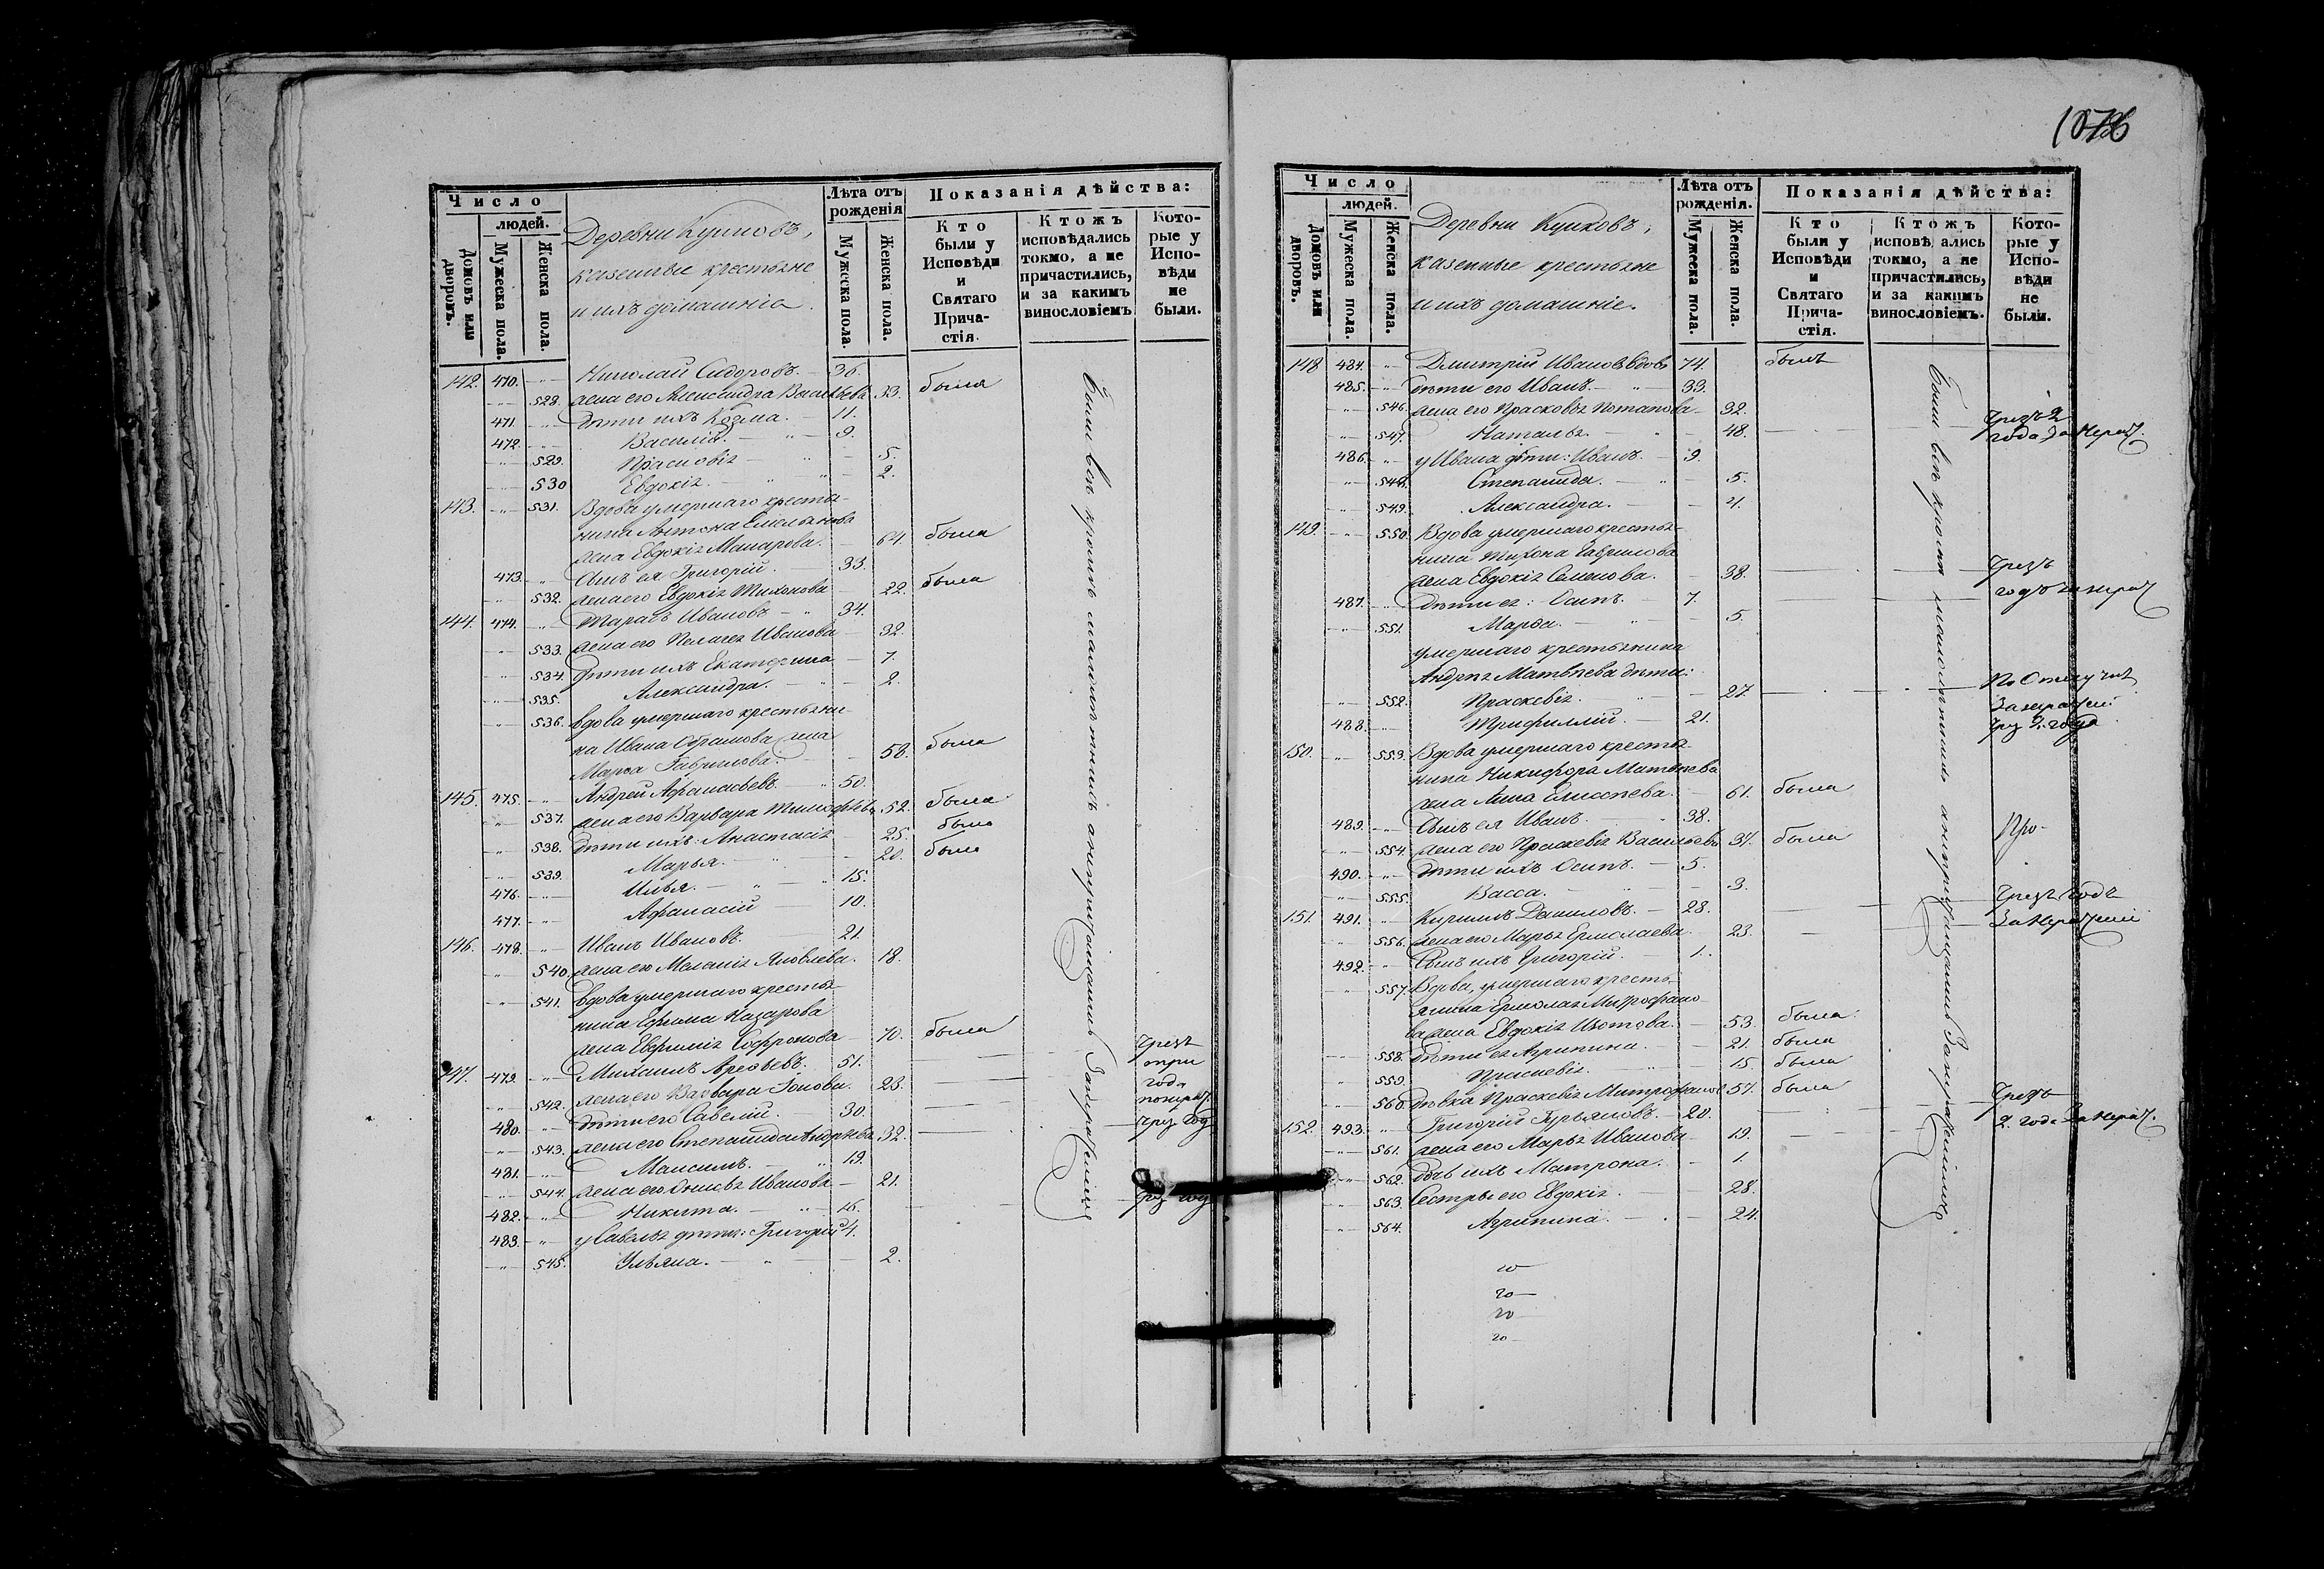 Число
людей.
Домовъ или дворовъ.
Мужеска пола.
Женска пола.
Деревни Куликовъ,
казенные крестьяне
и ихъ домашнія.
Лѣта отъ рожденія
Мужеска пола.
Женска пола.
Показанія дѣйства:
Кто были у Исповѣди и Святаго Причастія.
Ктожъ исповѣдались токмо, а не причастились, и за какимъ винословіемъ
Которые у Исповѣди не были.
142. 470. Николай Сидоровъ. 36.
528. жена его Александра Васильева 33. была
471. дѣти ихъ Козма. 11.
472. Василій. 9.
529. Прасковія 5.
530 Евдокія. 2.
143. 531. Вдова умершаго крестья-
нина Антона Емельянова
жена Евдокія Макарова. 64. была
473. Сынъ ея Григорій. 33.
532. жена его Евдокія Тихонова 22. была
144. 474. Тарасъ Ивановъ 34.
533. жена его Пелагея Иванова 32.
534. дѣти ихъ Екатерина 7.
535. Александра. 2.
536. вдова умершаго крестьяни-
на Ивана Абрамова жена
Марѳа Гаврилова. 58. была
145. 475. Андрей Афанасьевъ. 50.
537. жена его Варвара Тимофѣева 52. была
538. дѣти ихъ: Анастасія 25. была
539. Марья. 20. была
476. Илья. 15.
477. Афанасій 10.
146. 478. Иванъ Ивановъ. 21.
540 жена его Меланія Яковлева. 18.
541. вдова умершаго крестья-
нина Ефима Назарова
жена Евфимія Софронова 70. была
147. 479. Михаилъ Арефьевъ. 51. Чрезъ три года
542. жена его Варвара Іонова. 23.
480. дѣти его Савелій. 30.
543. жена его Степанида Андрѣева 32. Чрез год
481. Максимъ. 19.
544. жена его Анисья Иванова 21.
482. Никита. 16.
483. у Савелья дѣти: Григорій 4.
545. Ульяна. 2.
Были всѣ кромѣ малолѣтнихъ
Число
людей.
Домовъ или дворовъ.
Мужеска пола.
Женска пола.
Деревни Куликовъ,
казенные крестьяне
и ихъ домашніе.
Лѣта отъ рожденія.
Мужеска пола.
Женска пола.
Показанія дѣйства:
Кто были у Исповѣди и Святаго Причастія.
Ктожъ исповѣдались токмо, а не причастились, и за какимъ винословіемъ.
Которые у Исповѣди не были.
148 484. Дмитрій Ивановъ вдовъ 74. былъ
485. дѣти его Иванъ. 33.
546. жена его Прасковья Потапова 32.
547. Наталья. 48. Чрезъ 2 года
486. у Ивана дѣти: Иванъ. 9.
548. Степанида. 5.
549. Александра. 4.
149. 550. Вдова умершаго крестья-
нина Тихона Гаврилова
жена Евдокія Семенова. 38. Чрезъ годъ
487. Дѣти ея: Осипъ. 7.
551. Марѳа. 5.
умершаго крестьянина
Андрея Матвѣева дѣти:
552. Праскевія. 27 По Отлучкѣ
488. Трифиллій. 21.
150. 553. Вдова умершаго крестья-
нина Никифора Матвѣева
жена Анна Елисѣева. 61. была
489. Сынъ ея Иванъ. 38.
554. жена его Праскевія Васильева 34. была
490. дѣти ихъ Осипъ. 5.
555. Васса. 3.
151. 491. Кирилъ Даниловъ. 28. Чрезъ годъ
556. жена его Марья Ермолаева 23.
492. Сынъ ихъ Григорій. 1.
557. Вдова, умершаго кресть-
янина Ермолая Митрофано-
ва жена Евдокія Изотова. 53. была.
558. дѣти ея Агрипина. 21. была
559. Праскевія. 15. была
560. дѣвка Праскевія Митрофанова 57. была
152. 493. Григорій Гурьяновъ. 20. Чрезъ 2. года
561. жена его Марья Иванова 19.
562. дочь ихъ Матрона. 1.
563. Сестры его Евдокія 28.
564. Агрипина. 24.
Были всѣ кромѣ малолѣтнихъ